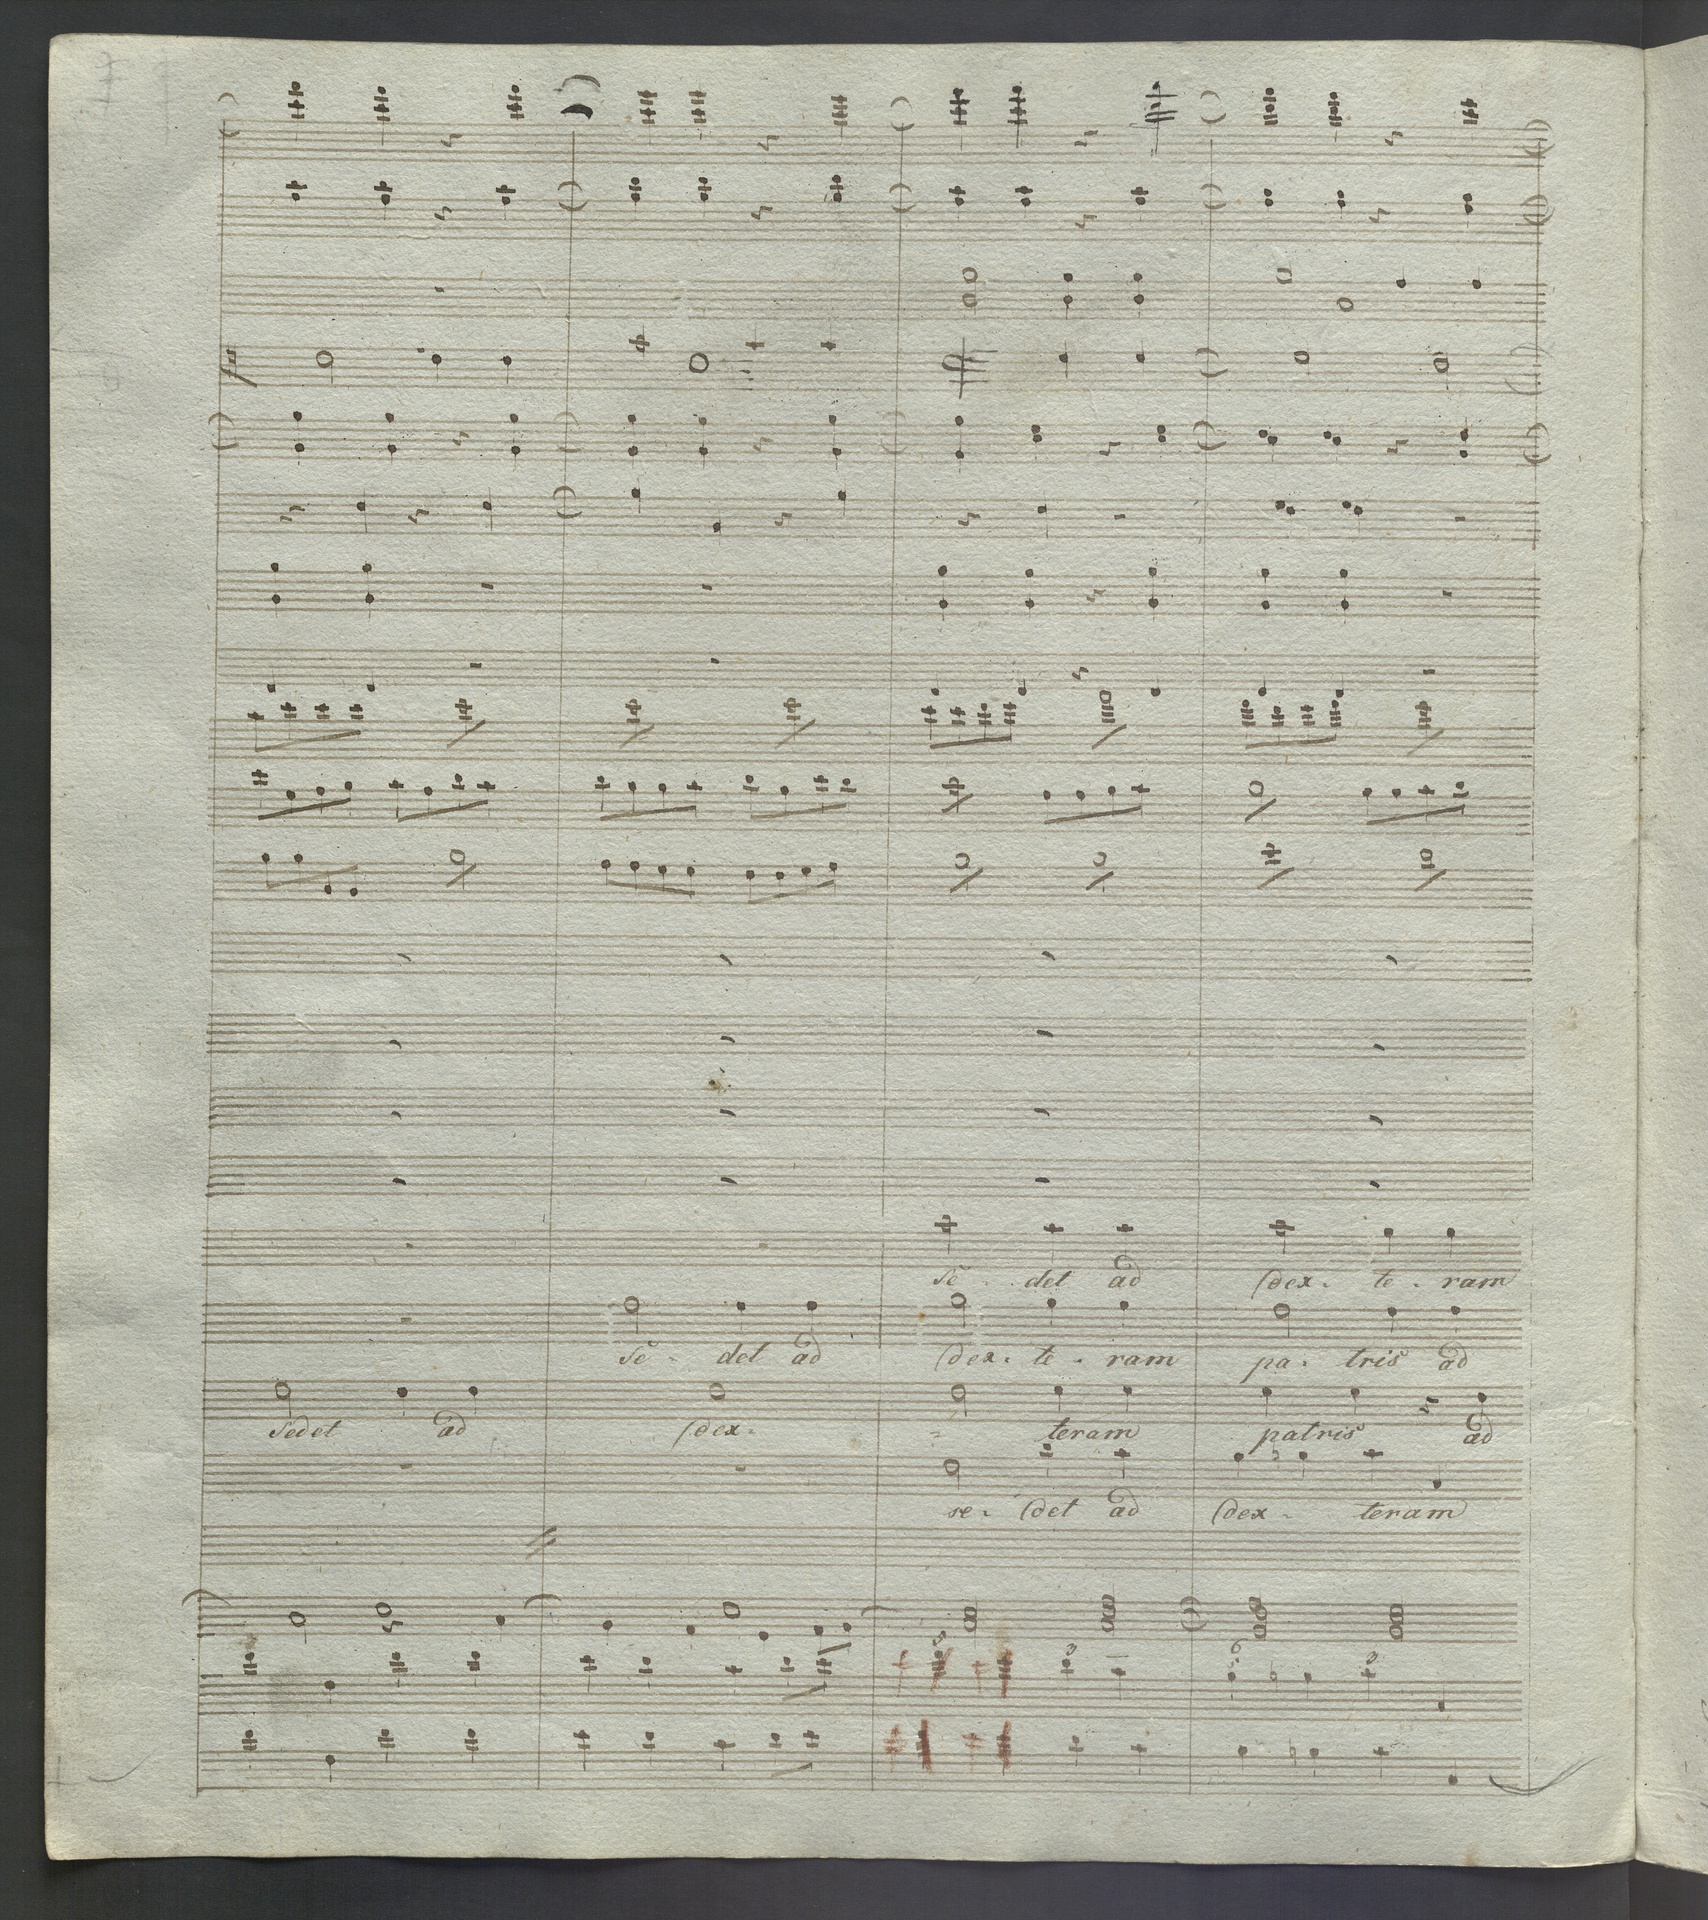 se - det ad dex - te - ram
se - det ad dex - te - ram pa - tris ad
sedet ad dex - - teram patris ad
se - det ad dex - teram